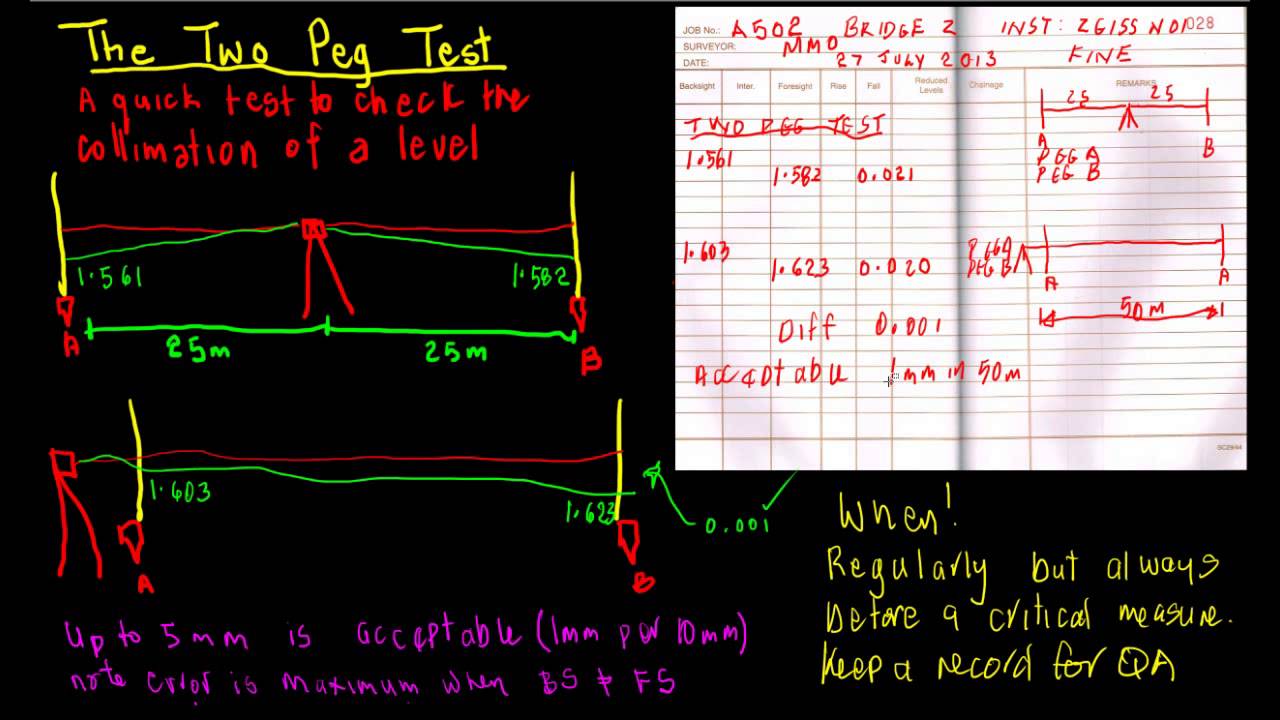 The Two Peg Test
A quick test to check the
collimation of a level
1.561
1.582
A
25m
25m
B
1.603
1.623
0.001
A
B
Up to 5mm is acceptable (1mm per 10mm)
note error is maximum when BS ≠ FS
JOB No.: A502 BRIDGE 2 INST: ZEISS NO1 028
SURVEYOR: MMO
DATE: 27 JULY 2013 FINE
Backsight Inter. Foresight Rise Fall Reduced Levels Chainage REMARKS
TWO PEG TEST
25 25
A B
1.561 PEG A
1.582 0.021 PEG B
1.603 PEG A
1.623 0.020 PEG B
A A
50m
Diff 0.001
Acceptable 1mm in 50m
When!
Regularly but always
before a critical measure.
Keep a record for QA